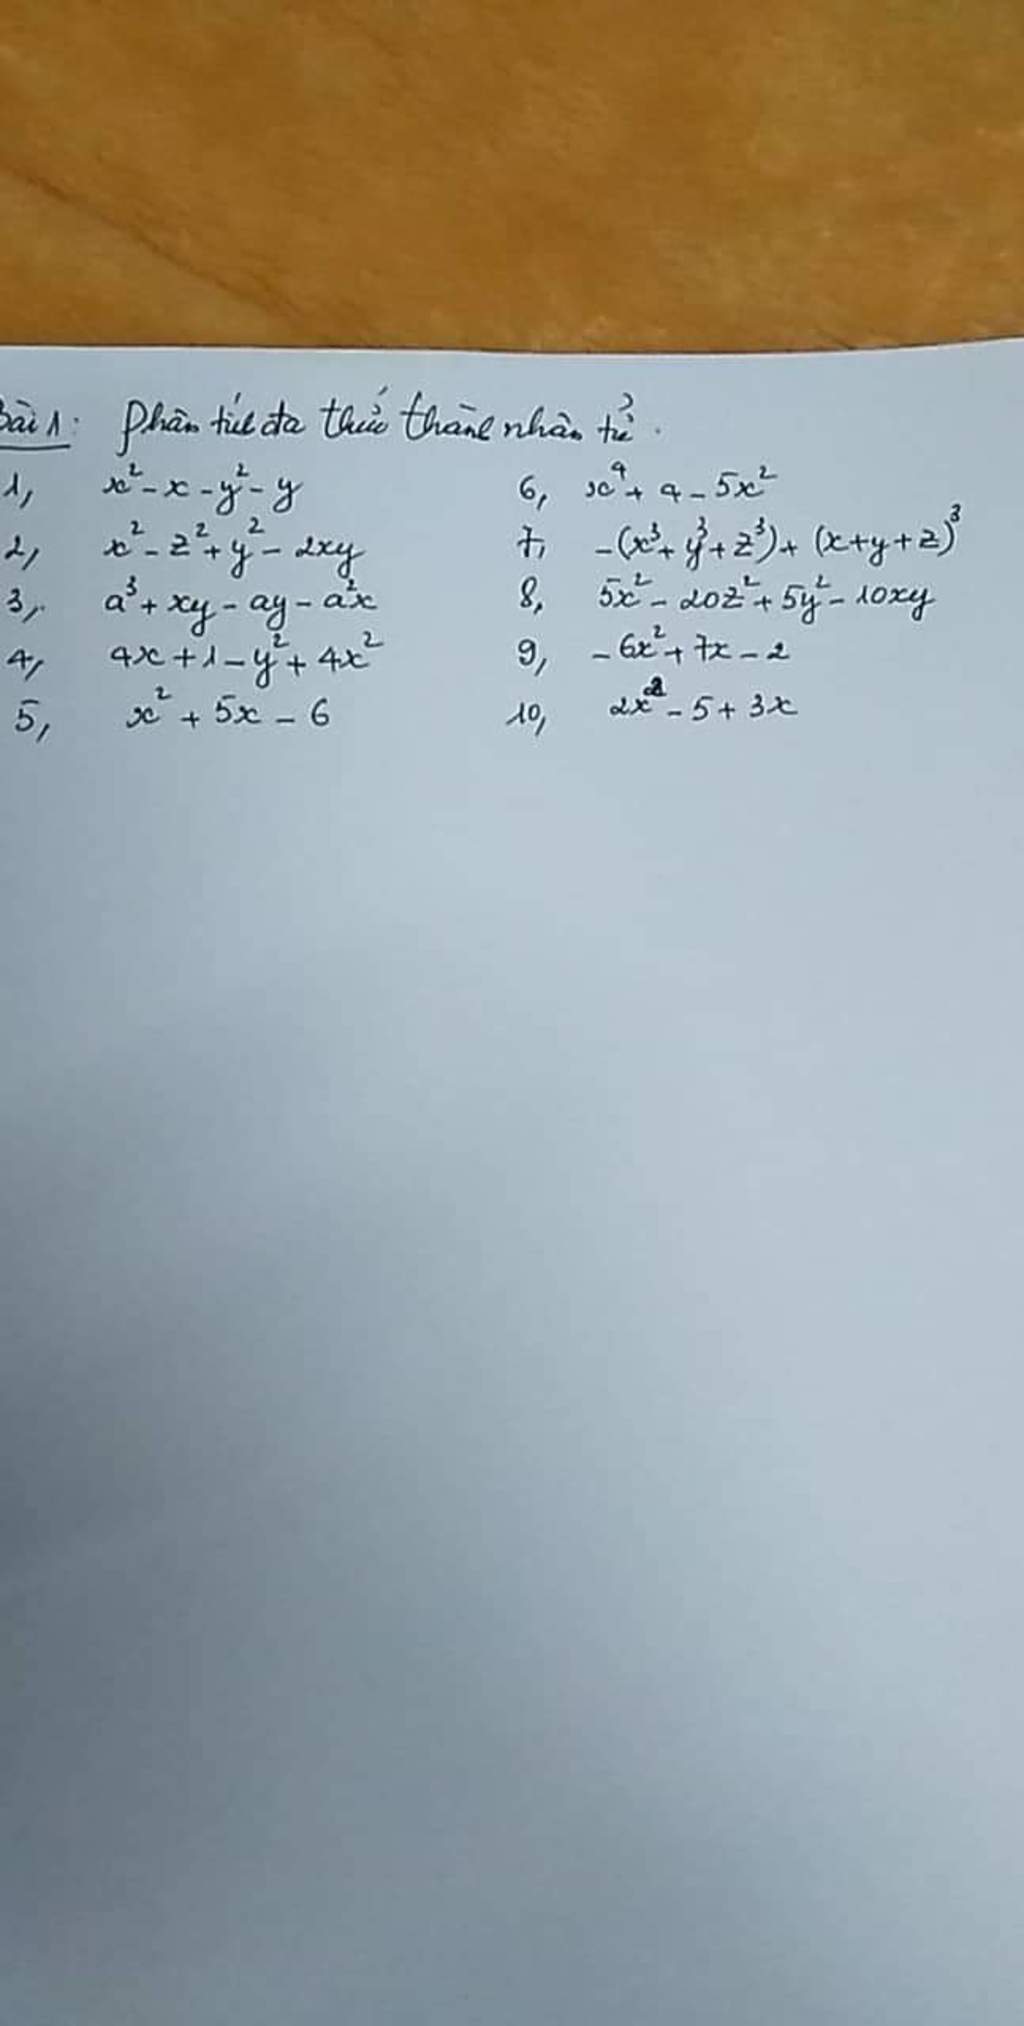 Bài 1: Phân tích đa thức thành nhân tử.
1, x² - x - y² - y
2, x² - z² + y² - 2xy
3, a³ + xy - ay - a²x
4, 4x + 1 - y² + 4x²
5, x² + 5x - 6
6, x⁴ + 4 - 5x²
7, -(x³ + y³ + z³) + (x + y + z)³
8, 5x² - 20z² + 5y² - 10xy
9, -6x² + 7x - 2
10, 2x² - 5 + 3x